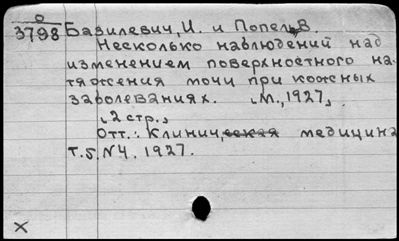 О
3798 Базилевич, И. и Попель, В.
Несколько наблюдений над
изменением поверхностного на-
тяжения мочи при кожных
заболеваниях. М., 1927.
2 стр.,
Отт.: Клинич. медицина
т. 5. N4. 1927.
X